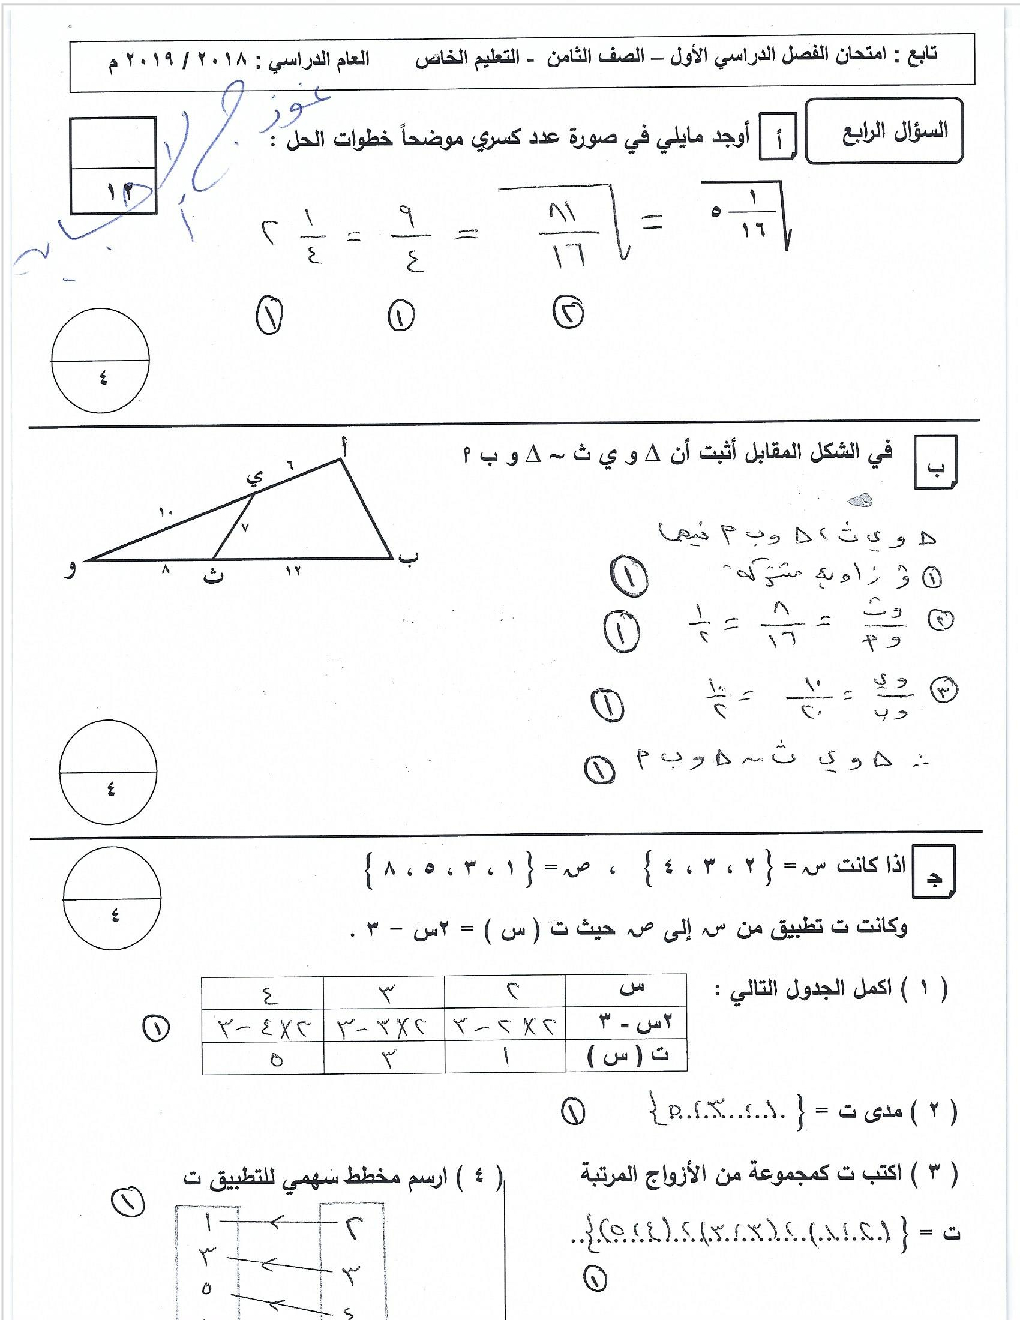 تابع : امتحان الفصل الدراسي الأول – الصف الثامن - التعليم الخاص العام الدراسي : ٢٠١٨ / ٢٠١٩ م
نموذج الإجابة
السؤال الرابع
أ أوجد مايلي في صورة عدد كسري موضحاً خطوات الحل :
١٢
√(٥ ١/١٦) = √(٨١/١٦) = ٩/٤ = ٢ ١/٤
٢ ١ ١
٤
ب في الشكل المقابل أثبت أن Δ و ي ث ~ Δ و ب م
أ ٦ ي ١٠ ٧ و ٨ ث ١٢ ب
Δ و ي ث ، Δ و ب م فيهما
١ و زاوية مشتركة ١
٢ وث/وم = ٨/١٦ = ١/٢ ١
٣ وي/وب = ١٠/٢٠ = ١٠/٢ ١
∴ Δ و ي ث ~ Δ و ب م ١
٤
ج اذا كانت س = { ٢ ، ٣ ، ٤ } ، ص = { ١ ، ٣ ، ٥ ، ٨ }
٤
وكانت ت تطبيق من س إلى ص حيث ت ( س ) = ٢س – ٣ .
( ١ ) اكمل الجدول التالي :
س ٢ ٣ ٤
٢س - ٣ ٢×٢-٣ ٢×٣-٣ ٢×٤-٣ ١
ت ( س ) ١ ٣ ٥
( ٢ ) مدى ت = { ١ ، ٣ ، ٥ } ١
( ٣ ) اكتب ت كمجموعة من الأزواج المرتبة
ت = { (٢،١) ، (٣،٣) ، (٤،٥) }
١
( ٤ ) ارسم مخطط سهمي للتطبيق ت
١
٢ ١
٣ ٣
٤ ٥